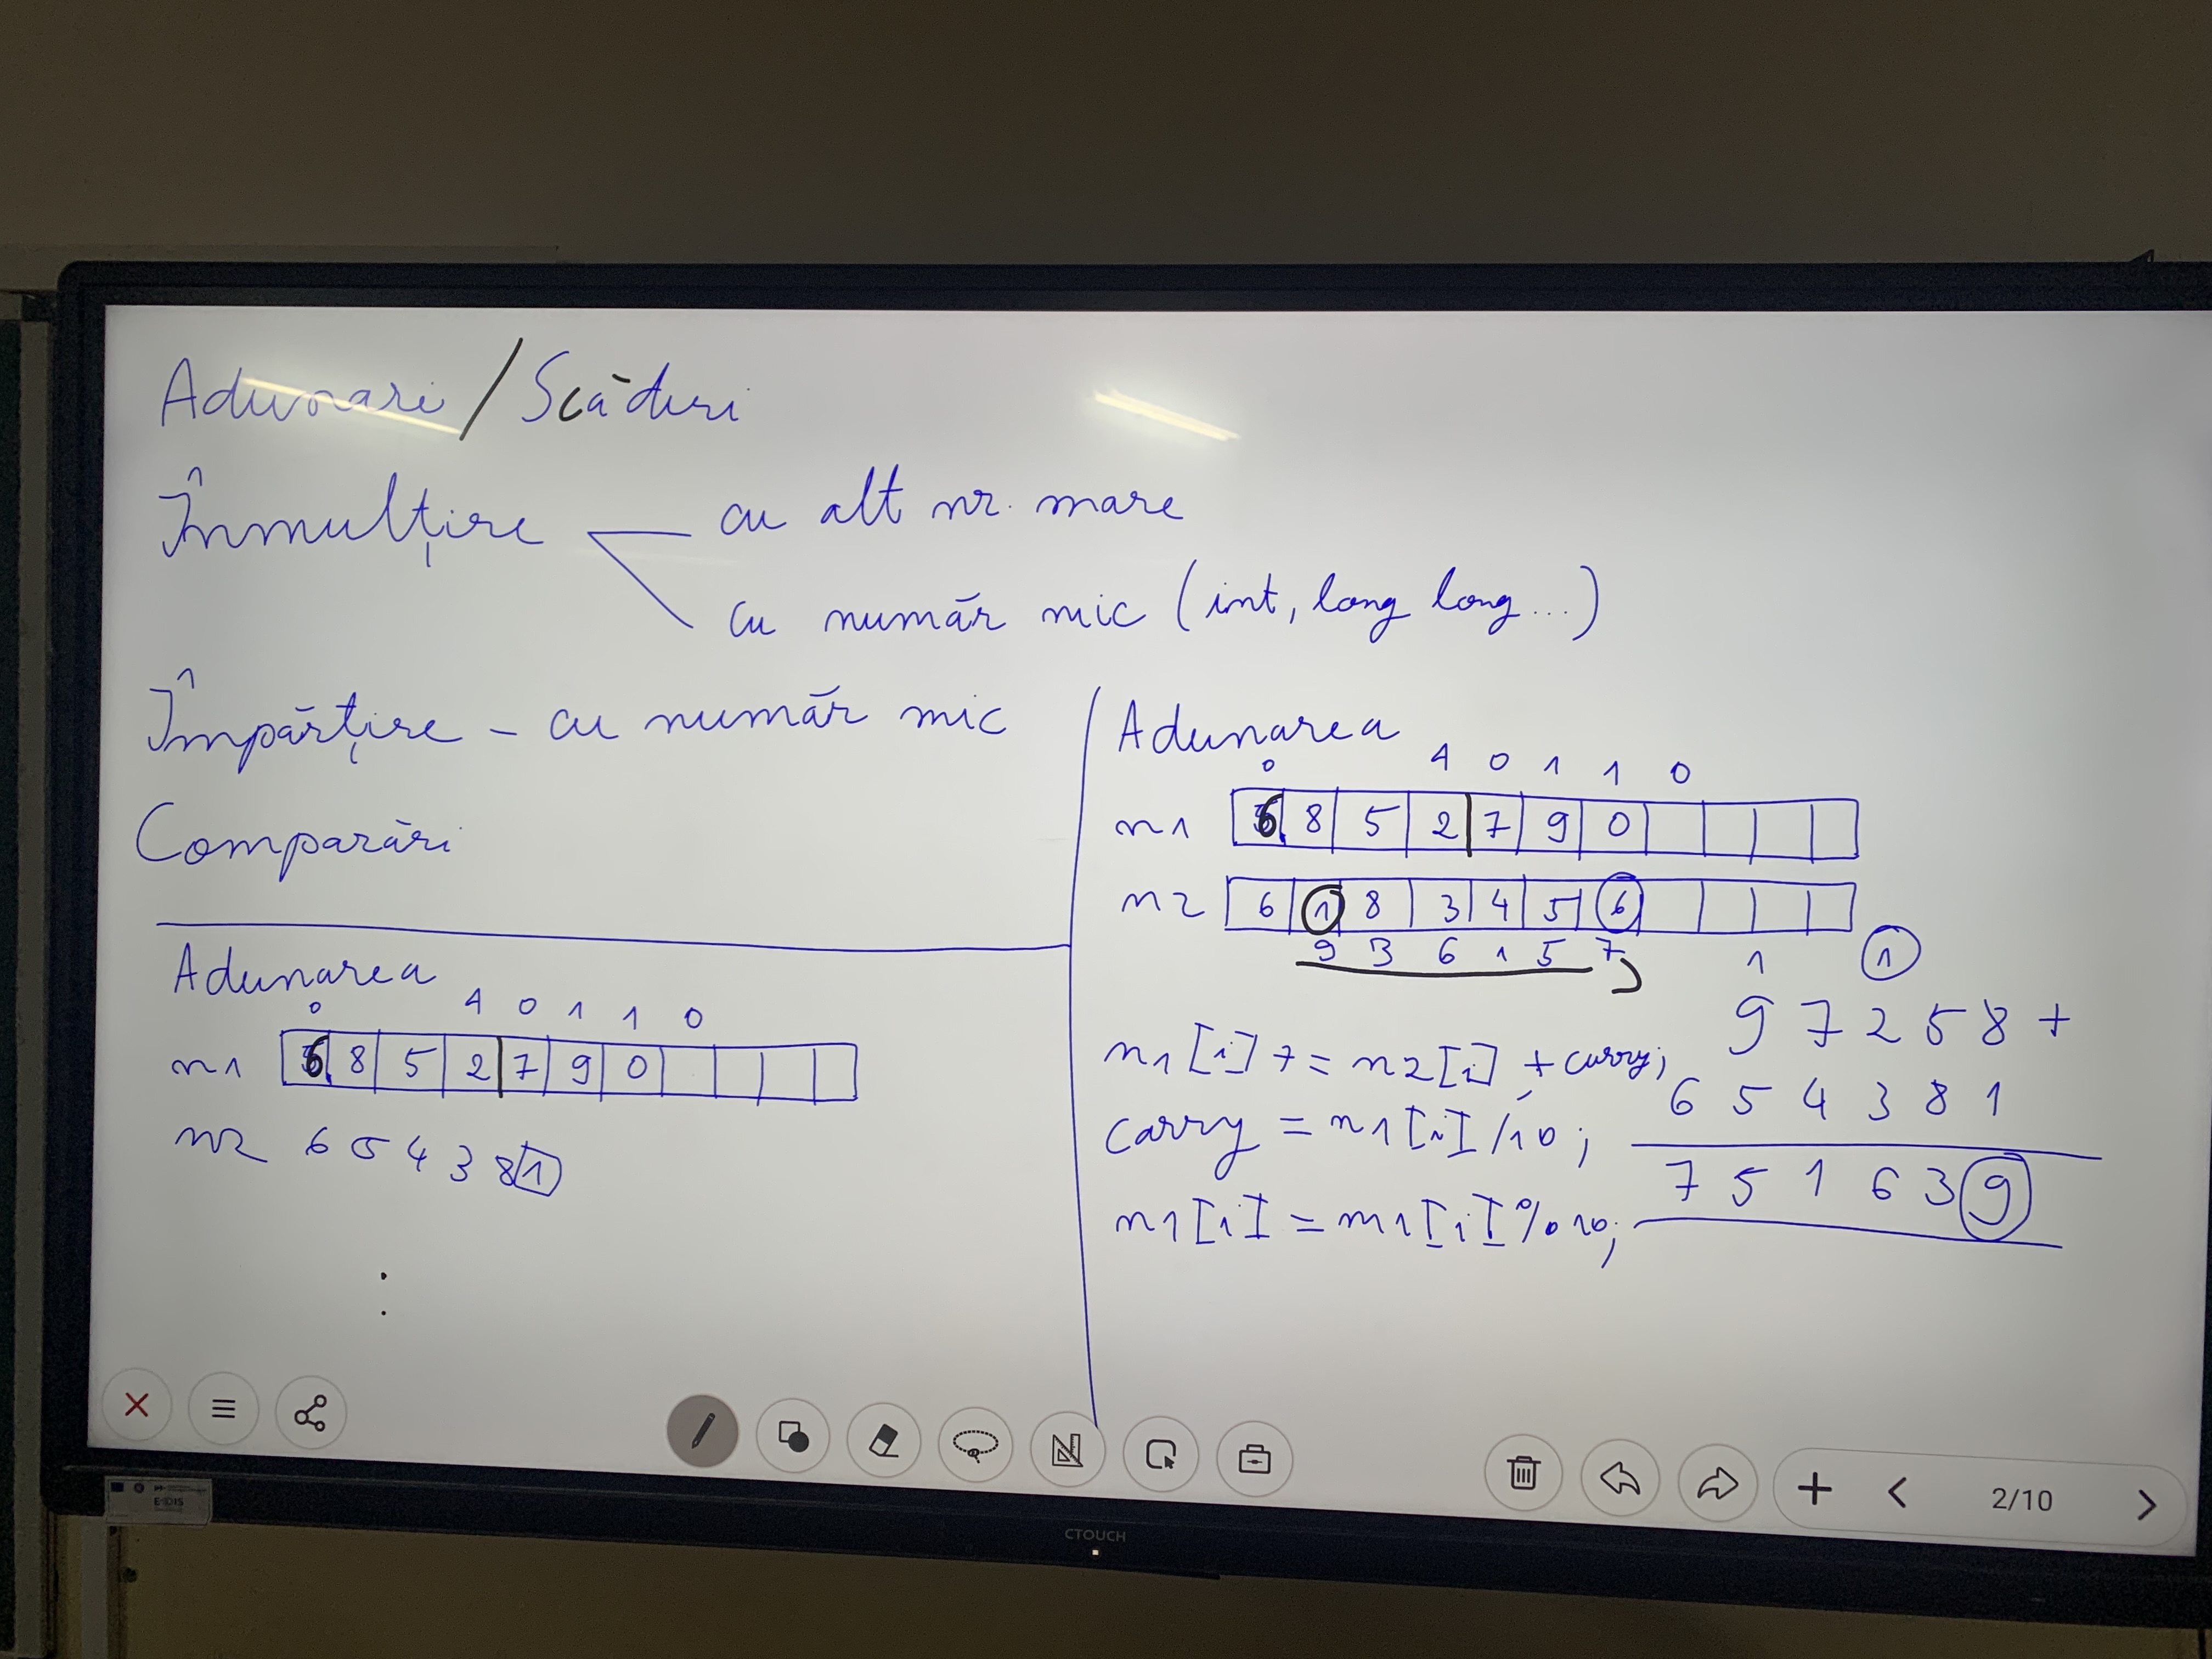 Adunari / Scăderi
Înmulțire
cu alt nr. mare
cu număr mic (int, long long...)
Împărțire - cu număr mic
Comparări
Adunarea
0 1 0 1 1 0
n1 6 8 5 2 7 9 0
n2 6 5 4 3 8 1
Adunarea
0 1 0 1 1 0
n1 6 8 5 2 7 9 0
n2 6 1 8 3 4 5 6
9 3 6 1 5 7
1 1
9 7 2 5 8 +
6 5 4 3 8 1
7 5 1 6 3 9
n1[i] += n2[i] + carry;
carry = n1[i] / 10;
n1[i] = n1[i] % 10;
2/10
CTOUCH